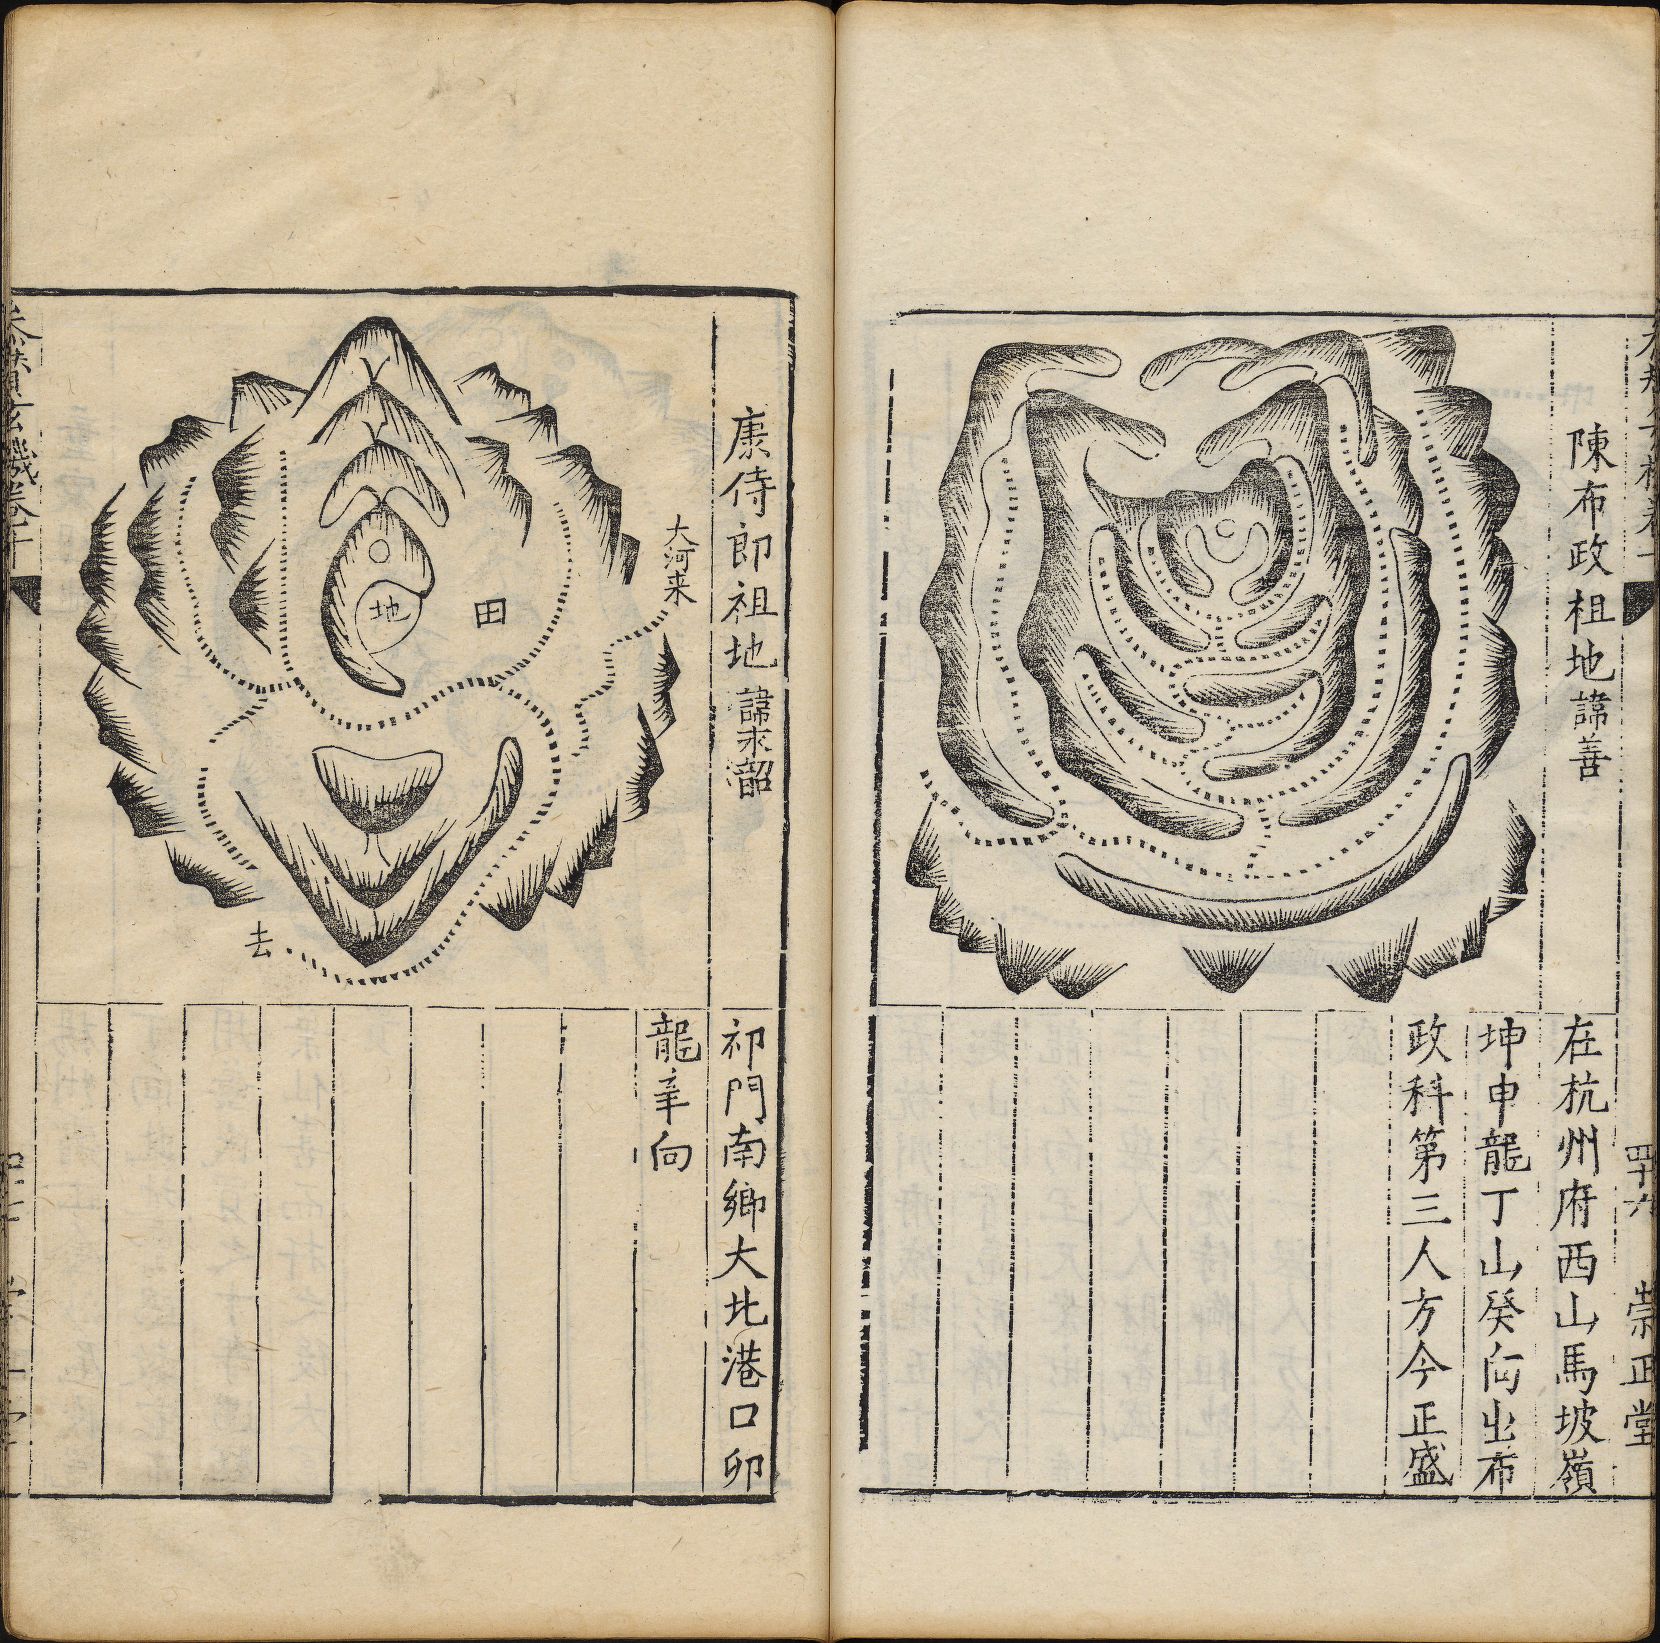 陳布政祖地諱善
在杭州府西山馬坡嶺
坤申龍丁山癸向出布
政科第三人方今正盛
四十六
崇正堂
康侍郎祖地諱永韶
大河来
田
地
去
祁門南鄉大北港口卯
龍辛向